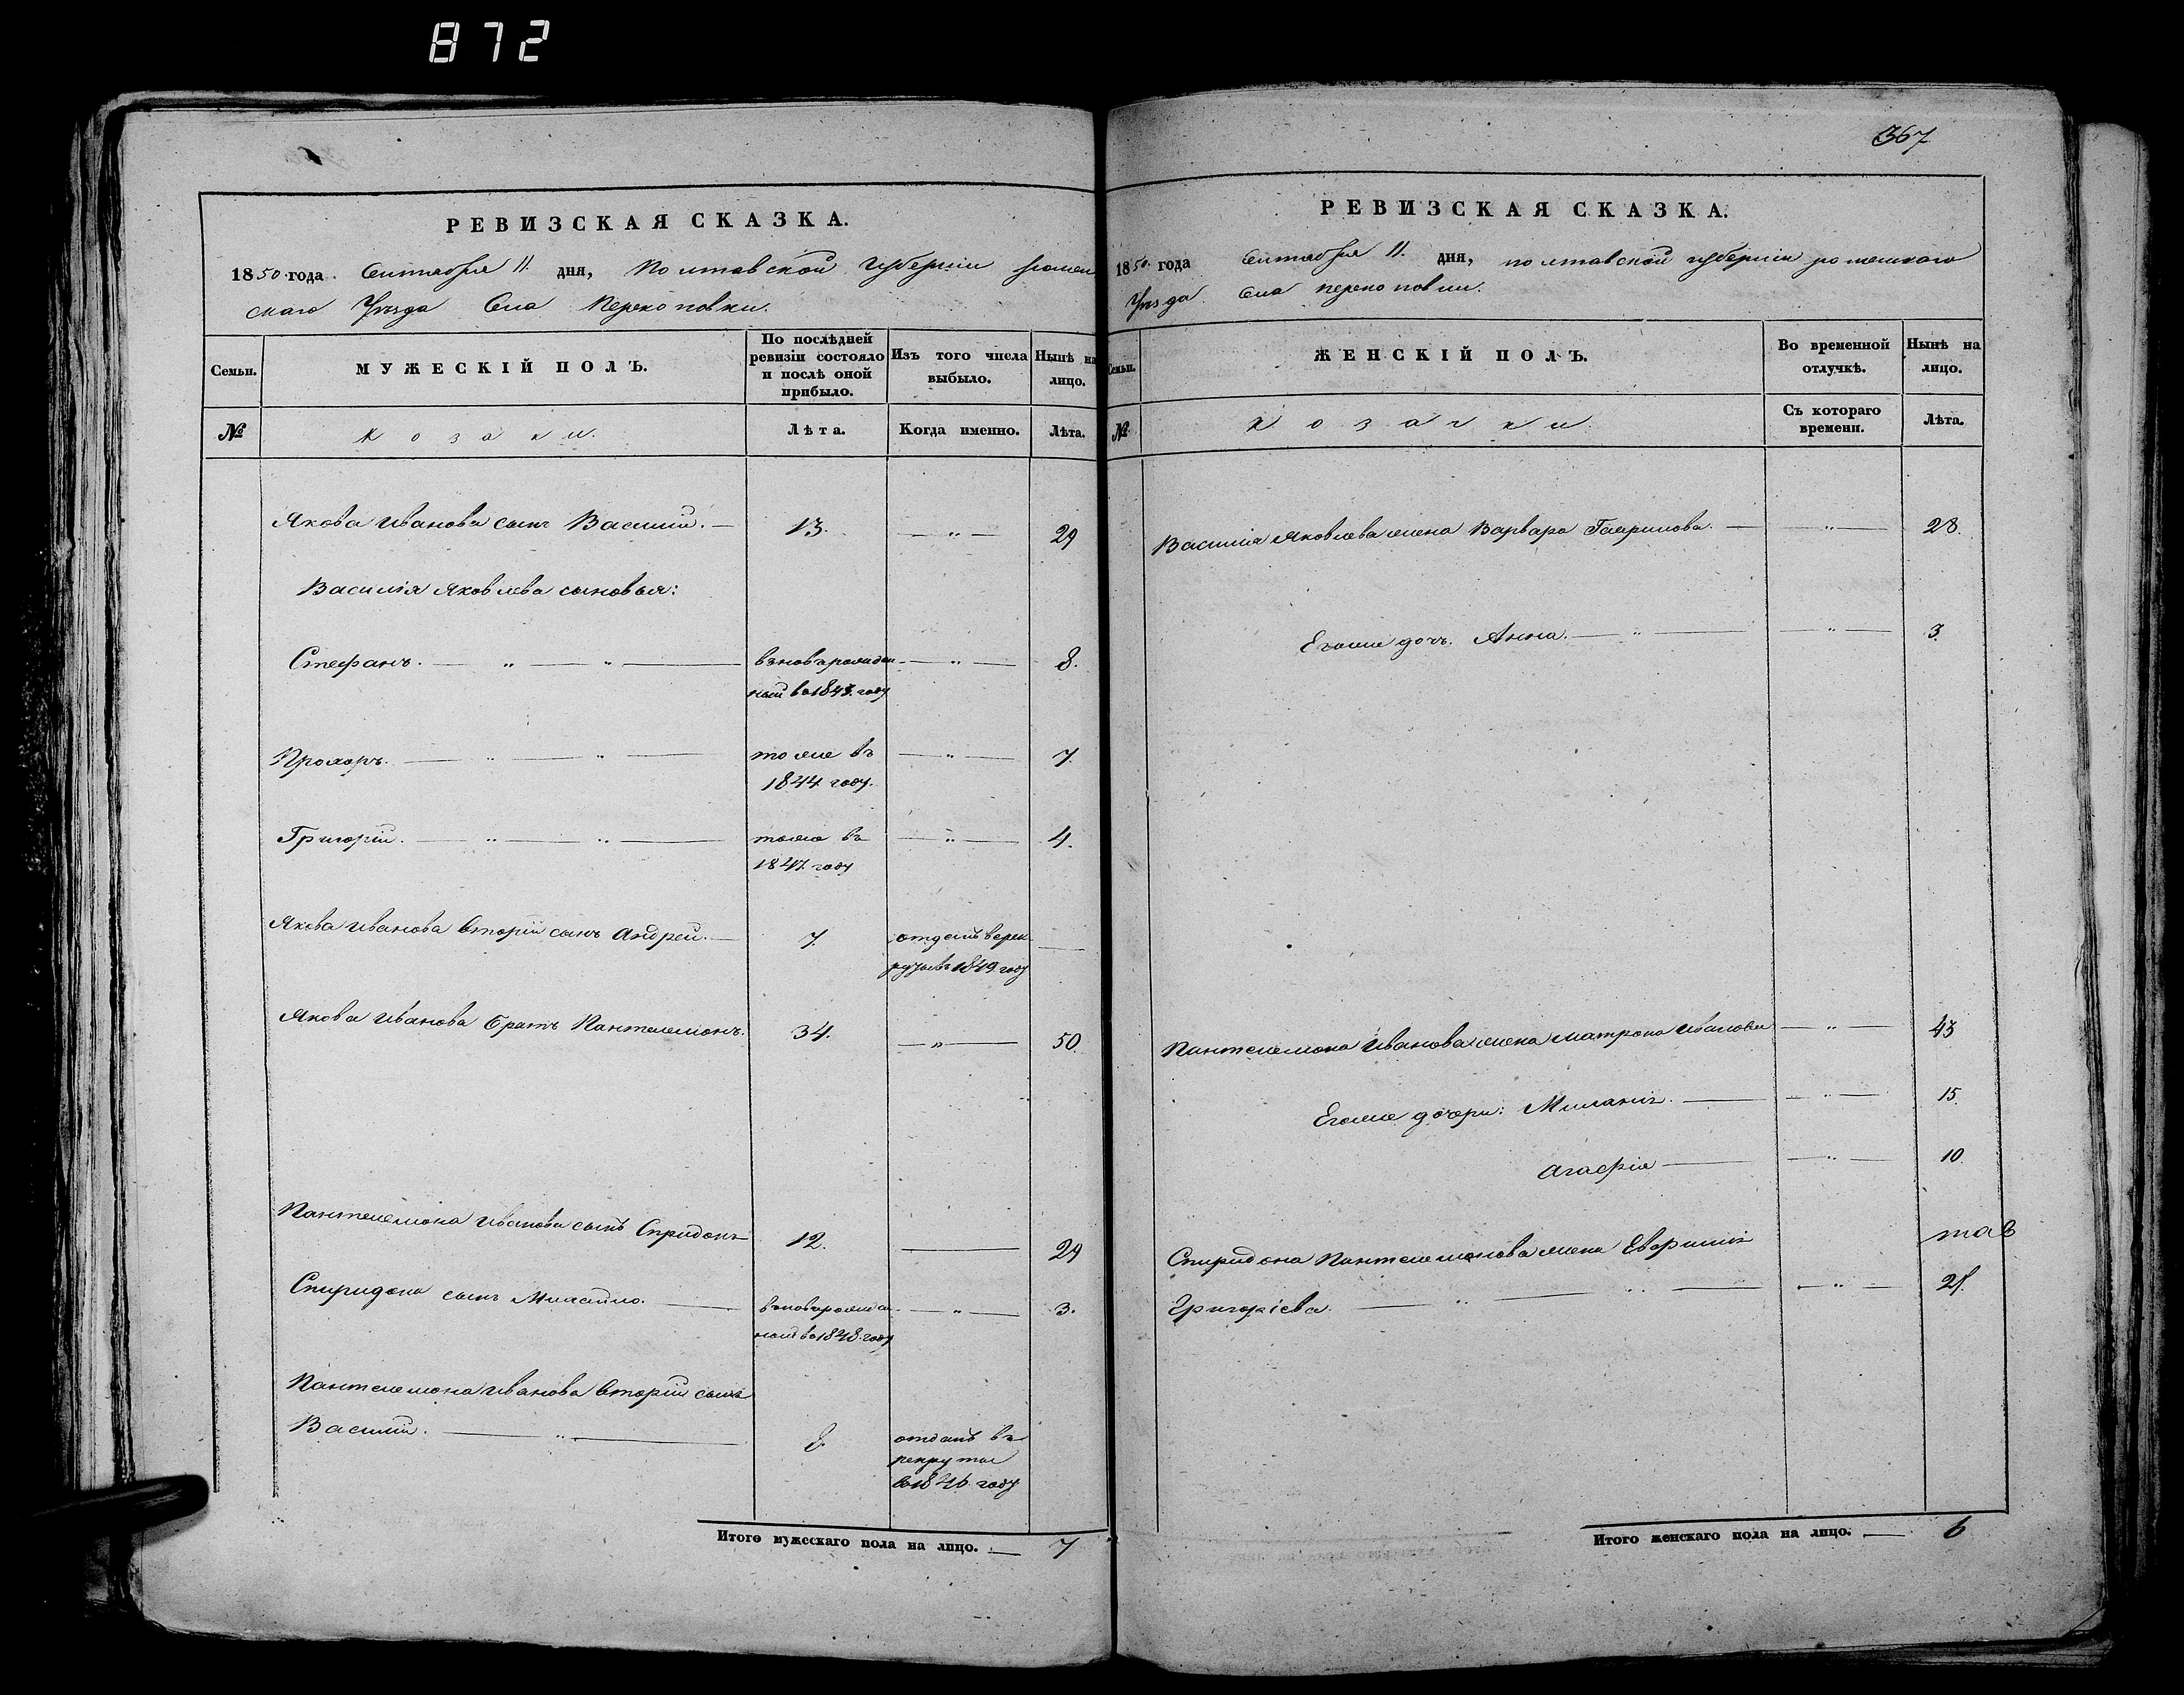 872
РЕВИЗСКАЯ СКАЗКА.
1850 года Сентября 11. дня, Полтавской губерніи Ромен
скаго Уѣзда Села Перекоповки.
Семьи.
МУЖЕСКІЙ ПОЛЪ.
По послѣдней ревизіи состояло и послѣ оной прибыло.
Изъ того числа выбыло.
Нынѣ на лицо.
№
Козаки.
Лѣта.
Когда именно.
Лѣта.
Якова Иванова сынъ Василій. — 13. — „ — 29
Василія Яковлева сыновья:
Стефанъ. — „ — „ — вновьрожден- — „ — 8.
ный в 1843. году
Прохоръ. — „ — „ — тоже въ — „ — 7.
1844 году.
Григорій. — „ — „ — тоже въ — „ — 4.
1847. году
Якова Иванова вторій сынъ Андрей. — 7. отданъ в рек- —
руты въ 1849 году
Якова Иванова братъ Пантелемонъ. 34. — „ — 50.
Пантелемона Иванова сынъ Спридонъ 12. — 29
Спиридона сынъ Михайло. — вновьрожден- — „ — 3.
ный во 1848. году
Пантелемона Иванова вторій сынъ
Василій. — „ — 8. отданъ въ
рекруты
во 1846 году
Итого мужескаго пола на лицо. — 7
367
РЕВИЗСКАЯ СКАЗКА.
1850 года Сентября 11. дня, полтавской губерніи роменскаго
Уѣзда Села перекоповки.
Семьи.
ЖЕНСКІЙ ПОЛЪ.
Во временной отлучкѣ.
Нынѣ на лицо.
№
Козачки.
Съ котораго времени.
Лѣта.
Василія Яковлева жена Варвара Гаврилова. — „ — 28.
Егоже дочь. Анна. — „ — „ — 3.
Пантелемона Иванова жена матрона Иванова — „ — 43
Егоже дочери: Миланія. — „ — 15.
Агафія — „ — 10.
Спиридона Пантелемонова жена Евфимія
Григоріева. — „ — „ — „ — 21.
Итого женскаго пола на лицо. — 6